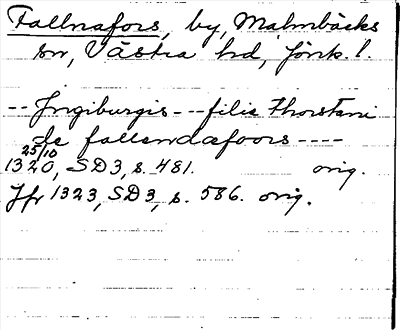 Fallnafors, by, Malmbäcks
sn, Västra hd, Jönk. l.
-- Jngiburgis --- filie Thorstani
de fallandafoors ----
25/10
1320, SD3, s. 481. orig.
Jfr 1323, SD3, s. 586. orig.